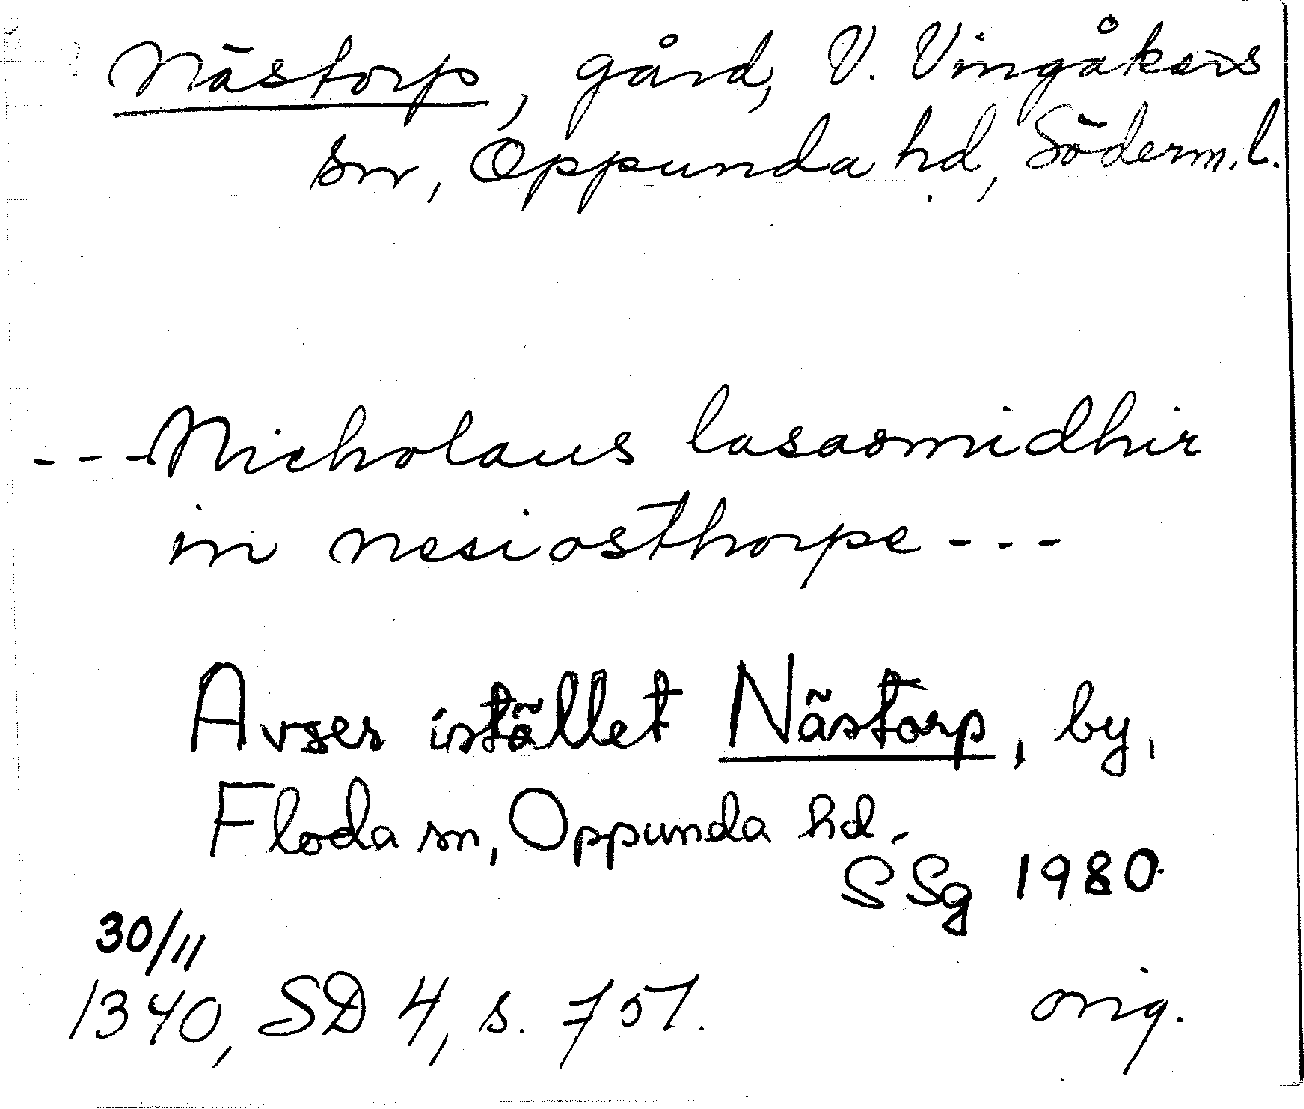 Nästorp, gård, V. Vingåkers
sn, Oppunda hd, Söderm. l.
---Nicholaus lasasmidhir
in nesiosthorpe---
Avser istället Nästorp, by,
Floda sn, Oppunda hd.
SSg 1980
30/11
1340, SD 4, s. 757.
orig.